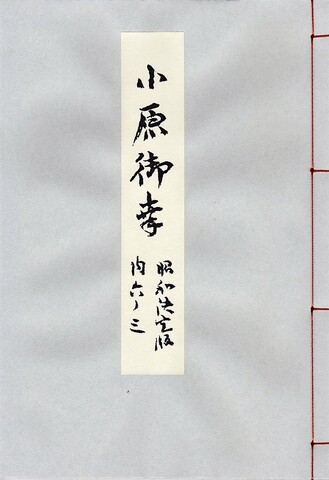 小原御幸
昭和決定版
内六ノ三